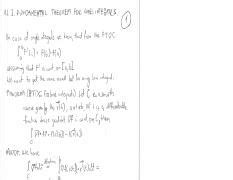 16.3 FUNDAMENTAL THEOREM FOR LINE INTEGRALS
1
In case of single integrals we know that from the FTOC
∫ F'(x) = F(b) - F(a)
assuming that F' is cont. on [a,b].
We want to get the same result but for any line integral.
THEOREM (FTOC for line integrals) Let C be a smooth
curve given by the r(t), a≤t≤b. Let f be a differentiable
function whose gradient ∇f is cont. on C, then
∫ ∇f·dr = f(r(b)) - f(r(a))
PROOF. We have